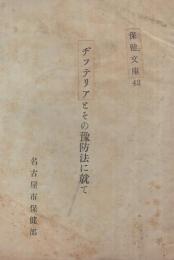 保健文庫 43
ヂフテリアとその豫防法に就て
名古屋市保健部